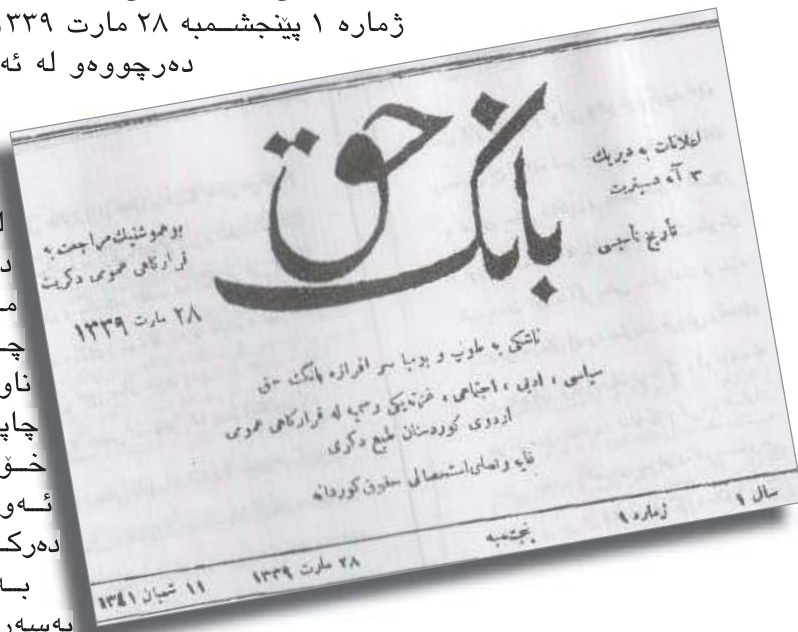 ژمارە ١ پێنجشــمبە ٢٨ مارت ١٣٣٩
دەرچووەو لە ئە
د
مـ
چـ
ناو
چاپ
خـۆ
ئـەو
دەرکـ
بـە
بەسەر
بانگ حق
اعلانات بە دیریك
٣ آنە دسینریت
تأریخ تأسیسی
بو همو شتیك مراجعت بە
قرارگاهی عمومی دکریت
٢٨ مارت ١٣٣٩
ناشکی بە طوپ و بومبا سر افرازە بانگ حق
سیاسی ، ادبی ، اجتماعی ، غزتەیکی رسمیە لە قرارگاهی عمومی
اردوی کوردستان طبع دکری
غایە و املی استحصالی حقوق کوردانە
سال ١ ژمارە ١ پنجشمبە ٢٨ مارت ١٣٣٩ ١١ شعبان ١٣٤١